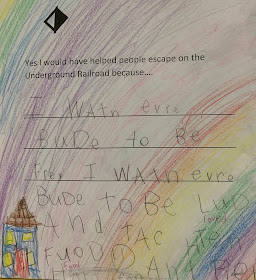 Yes I would have helped people escape on the
Underground Railroad because....
I WATN evre
BUDe to Be
Frey I WATN evre
BUDe to Be LUD
loved
And TAC
FUOD
food